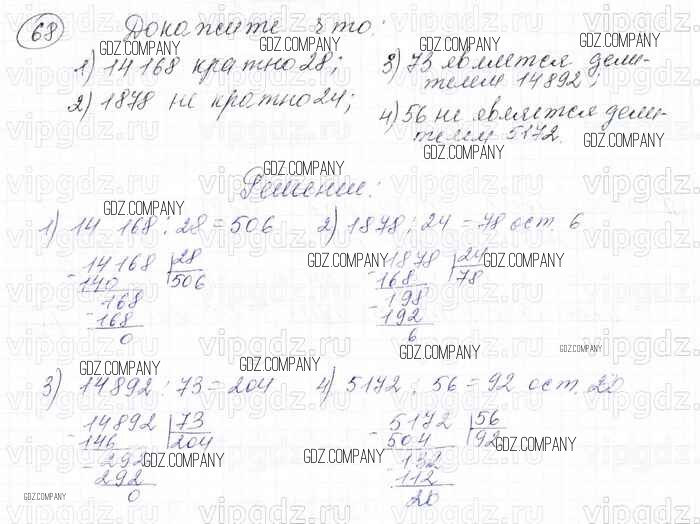 68 Докажите, что:
1) 14 168 кратно 28;
2) 1878 не кратно 24;
3) 73 является дели-
телем 14892;
4) 56 не является дели-
телем 5172.
Решение:
1) 14 168 : 28 = 506
14168 28
140 506
168
168
0
2) 1878 : 24 = 78 ост. 6
1878 24
168 78
198
192
6
3) 14892 : 73 = 204
14892 73
146 204
292
292
0
4) 5172 : 56 = 92 ост. 20
5172 56
504 92
132
112
20
GDZ.COMPANY
vipgdz.ru